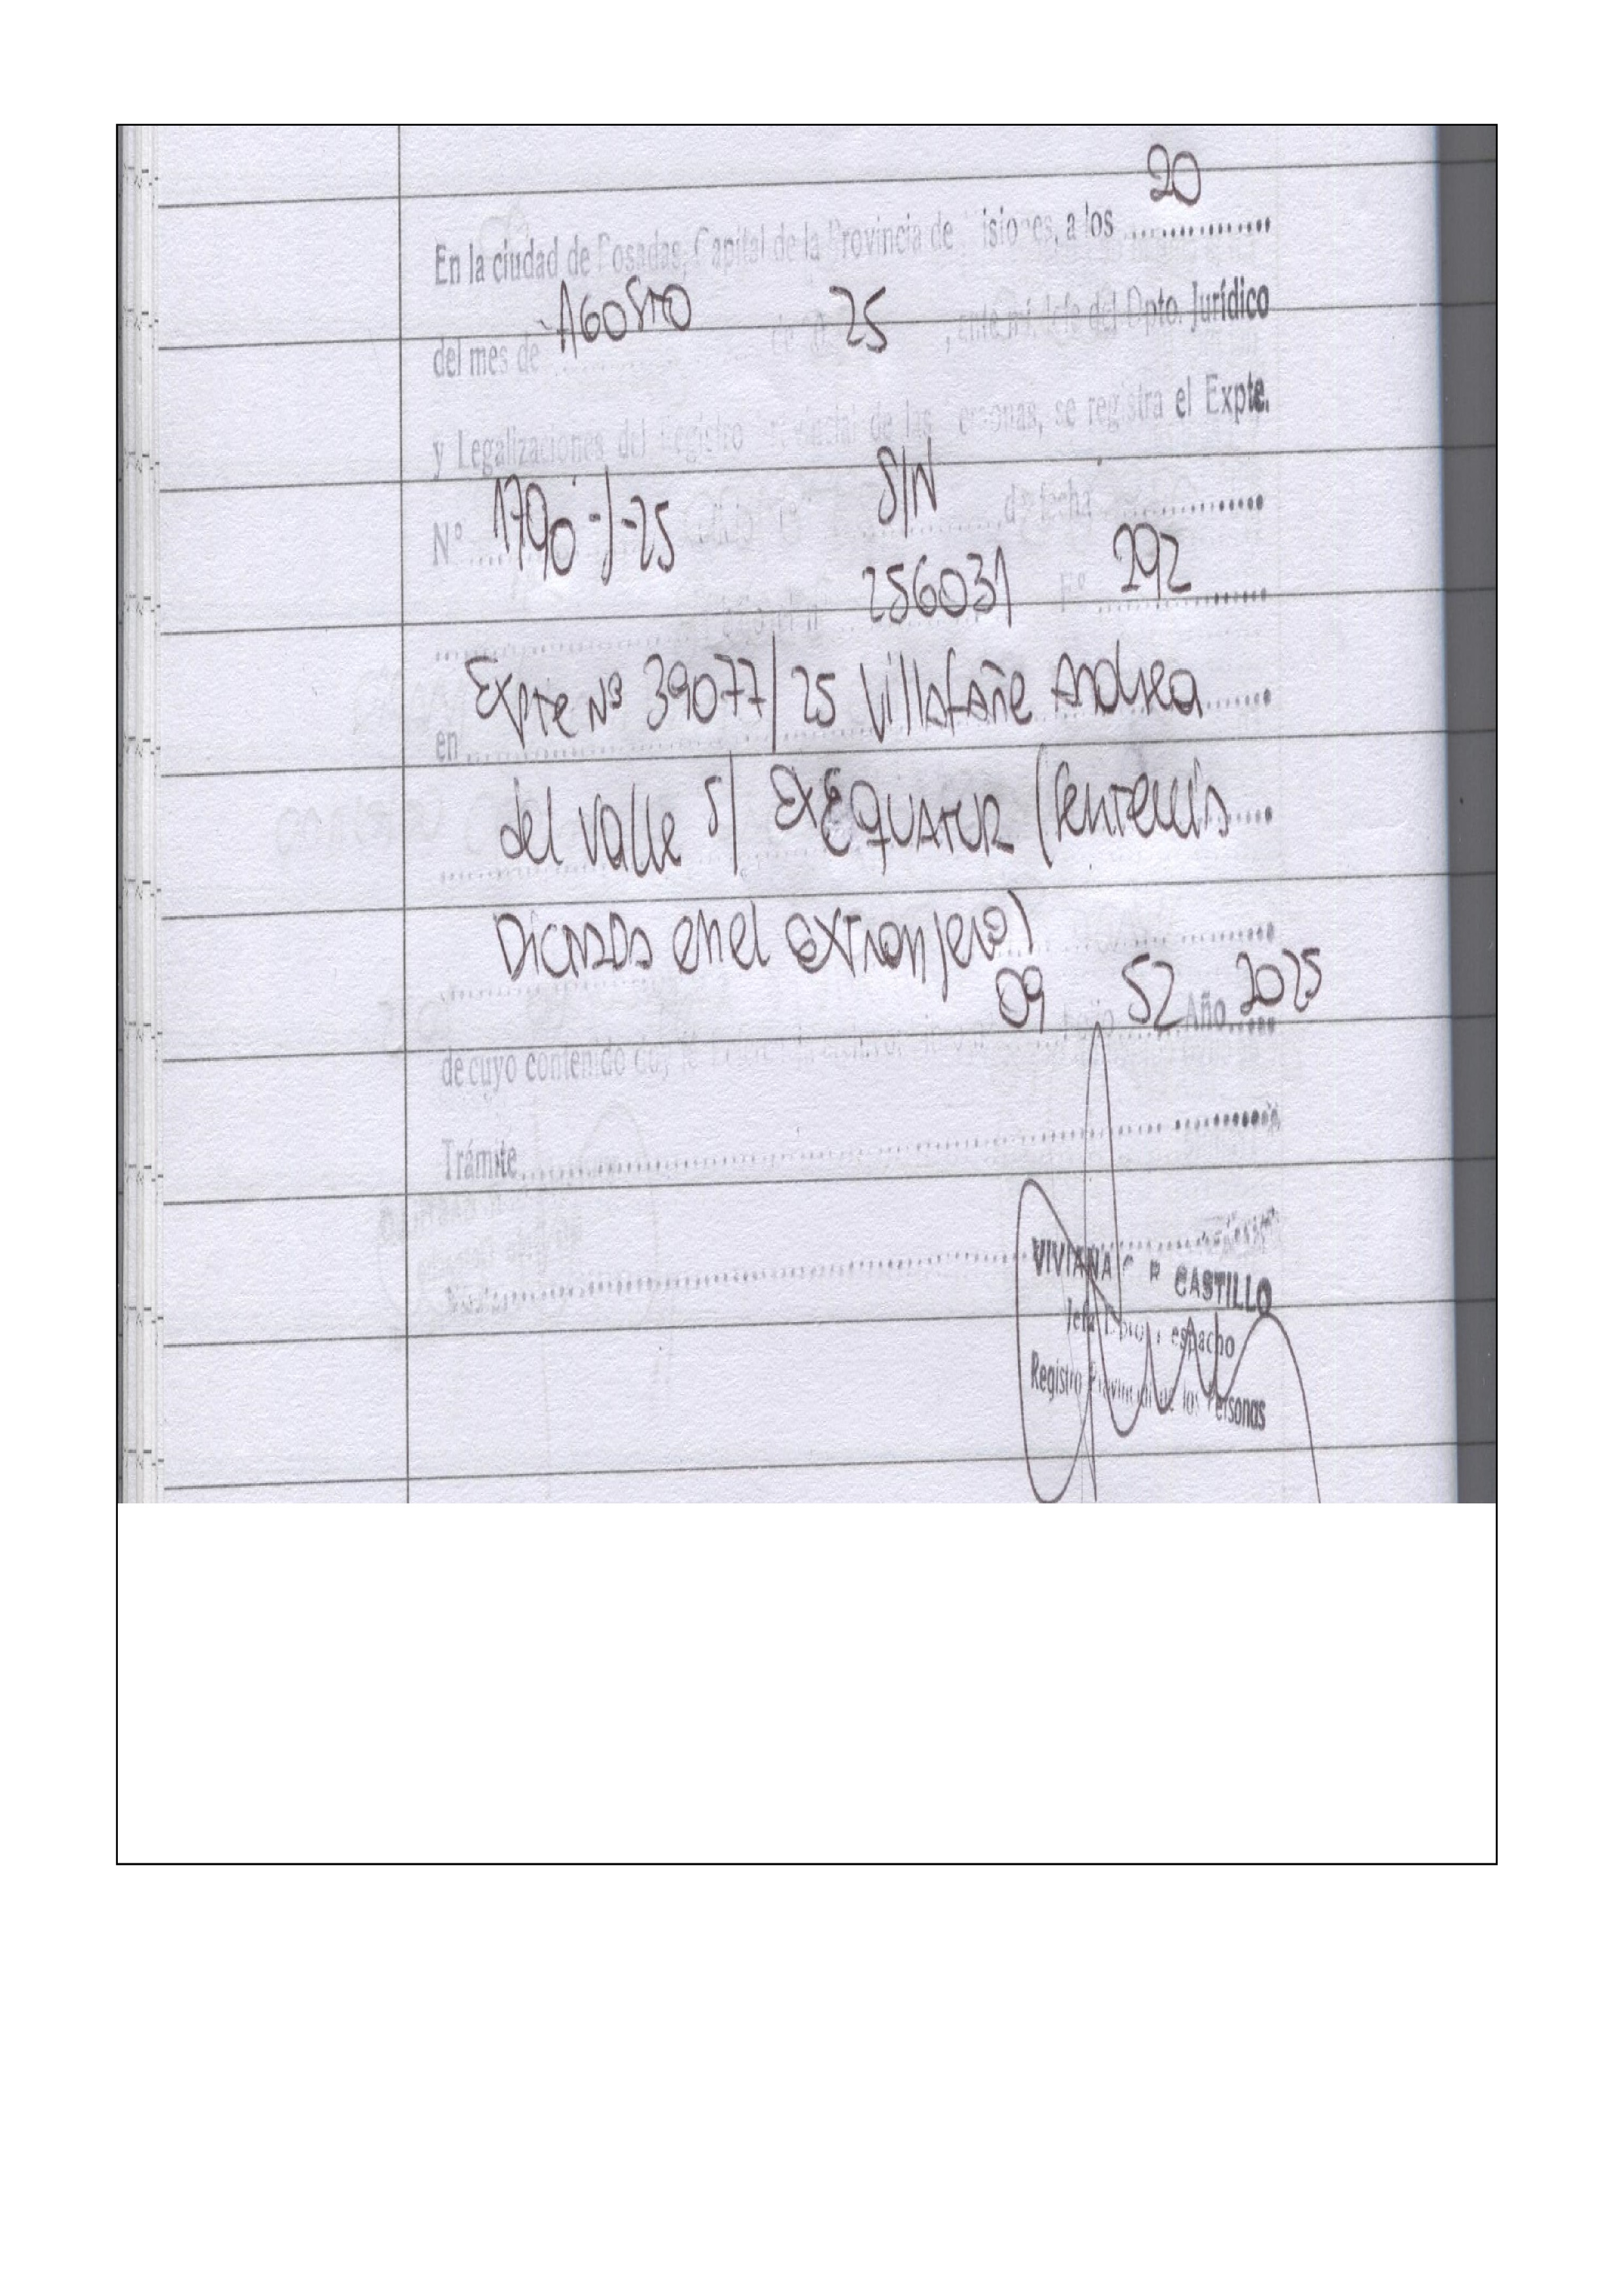 20
En la ciudad de Posadas, Capital de la Provincia de Misiones, a los
del mes de AGOSTO de 20 25, ante mi, Jefe del Dpto. Jurídico
y Legalizaciones del Registro Provincial de las Personas, se registra el Expte.
Nº 1790-J-25 S/N de fecha
256031 Fº 292
en Expte Nº 39077/25 Villafañe Andrea
del valle S/ EXEQUATUR (Sentencia
Dictada en el extranjero)
09 52 Año 2025
de cuyo contenido doy fe
Trámite
VIVIANA CASTILLO
Jefa Dpto. Despacho
Registro Provincial de las Personas